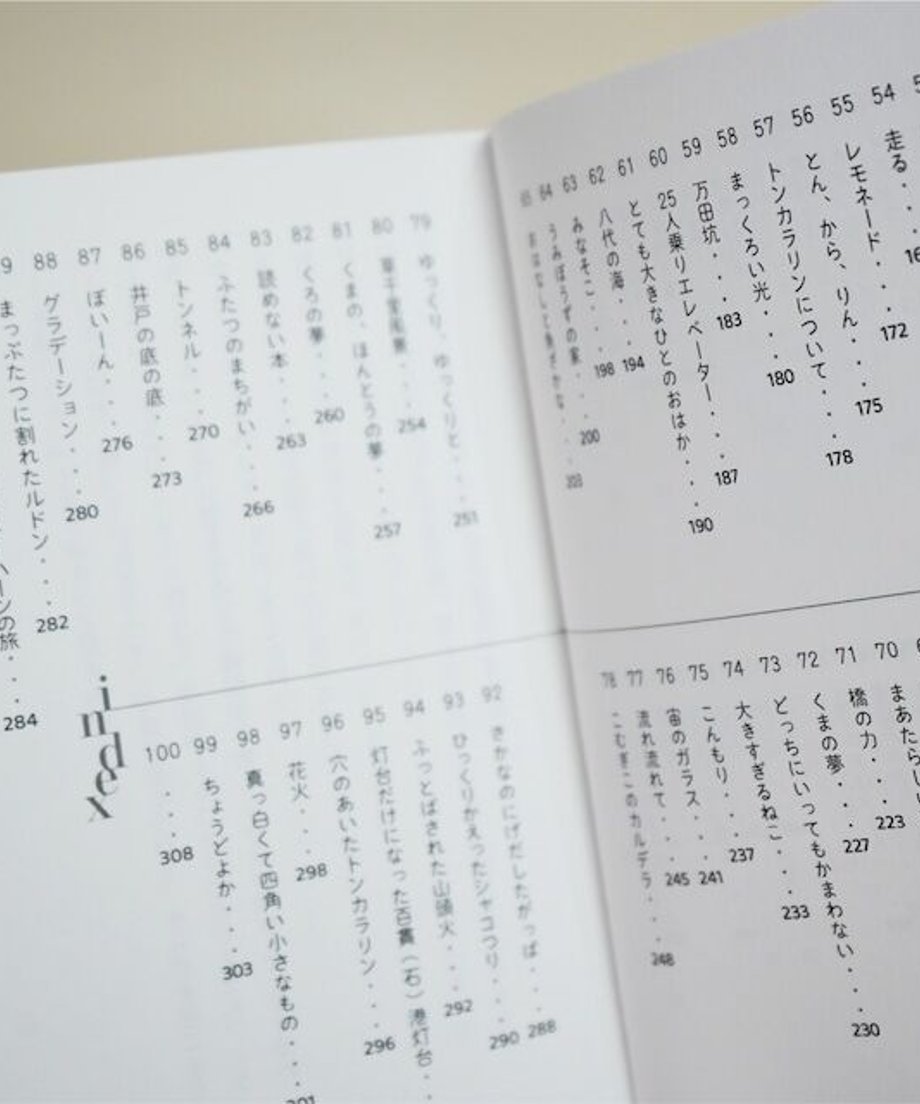 54 走る・・・
55 レモネード・・・172
56 とん、から、りん・・・175
57 トンカラリンについて・・・178
58 まっくろい光・・・180
59 万田坑・・・183
60 25人乗りエレベーター・・・187
61 とても大きなひとのおはか・・・190
62 八代の海・・・194
63 みなそこ・・・198
64 うみぼうずの家・・・200
65
70 まあたらしい
71 橋の力・・・223
72 くまの夢・・・227
73 どっちにいってもかまわない・・・230
74 大きすぎるねこ・・・233
75 こんもり・・・237
76 宙のガラス・・・241
77 流れ流れて・・・245
78 こむぎこのカルデラ・・・248
79 ゆっくり、ゆっくりと・・・251
80 ・・・254
81 くまの、ほんとうの夢・・・257
82 くろの夢・・・260
83 読めない本・・・263
84 ふたつのまちがい・・・266
85 トンネル・・・270
86 井戸の底の底・・・273
87 ぽいーん・・・276
88 グラデーション・・・280
9 まっぷたつに割れたルドン・・・282
ーンの旅・・・284
92 さかなのにげだしたがっぱ・・・288
93 ひっくりかえったシャコつり・・・290
94 ふっとばされた山頭火・・・292
95 灯台だけになった百貫（石）港灯台・
96 穴のあいたトンカラリン・・・296
97 花火・・・298
98 真っ白くて四角い小さなもの・・・301
99 ちょうどよか・・・303
100 ・・・308
index